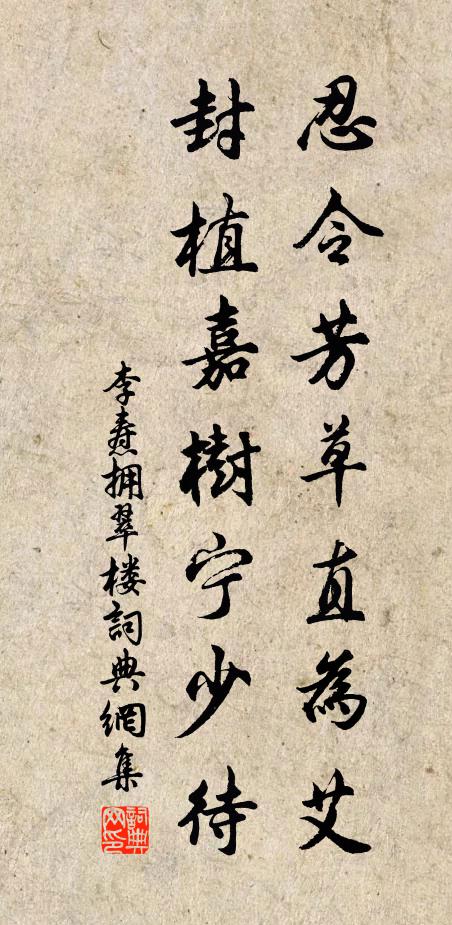 忍令芳草直為艾
封植嘉樹宁少待
李焘拥翠楼詞典網集
詞典网印